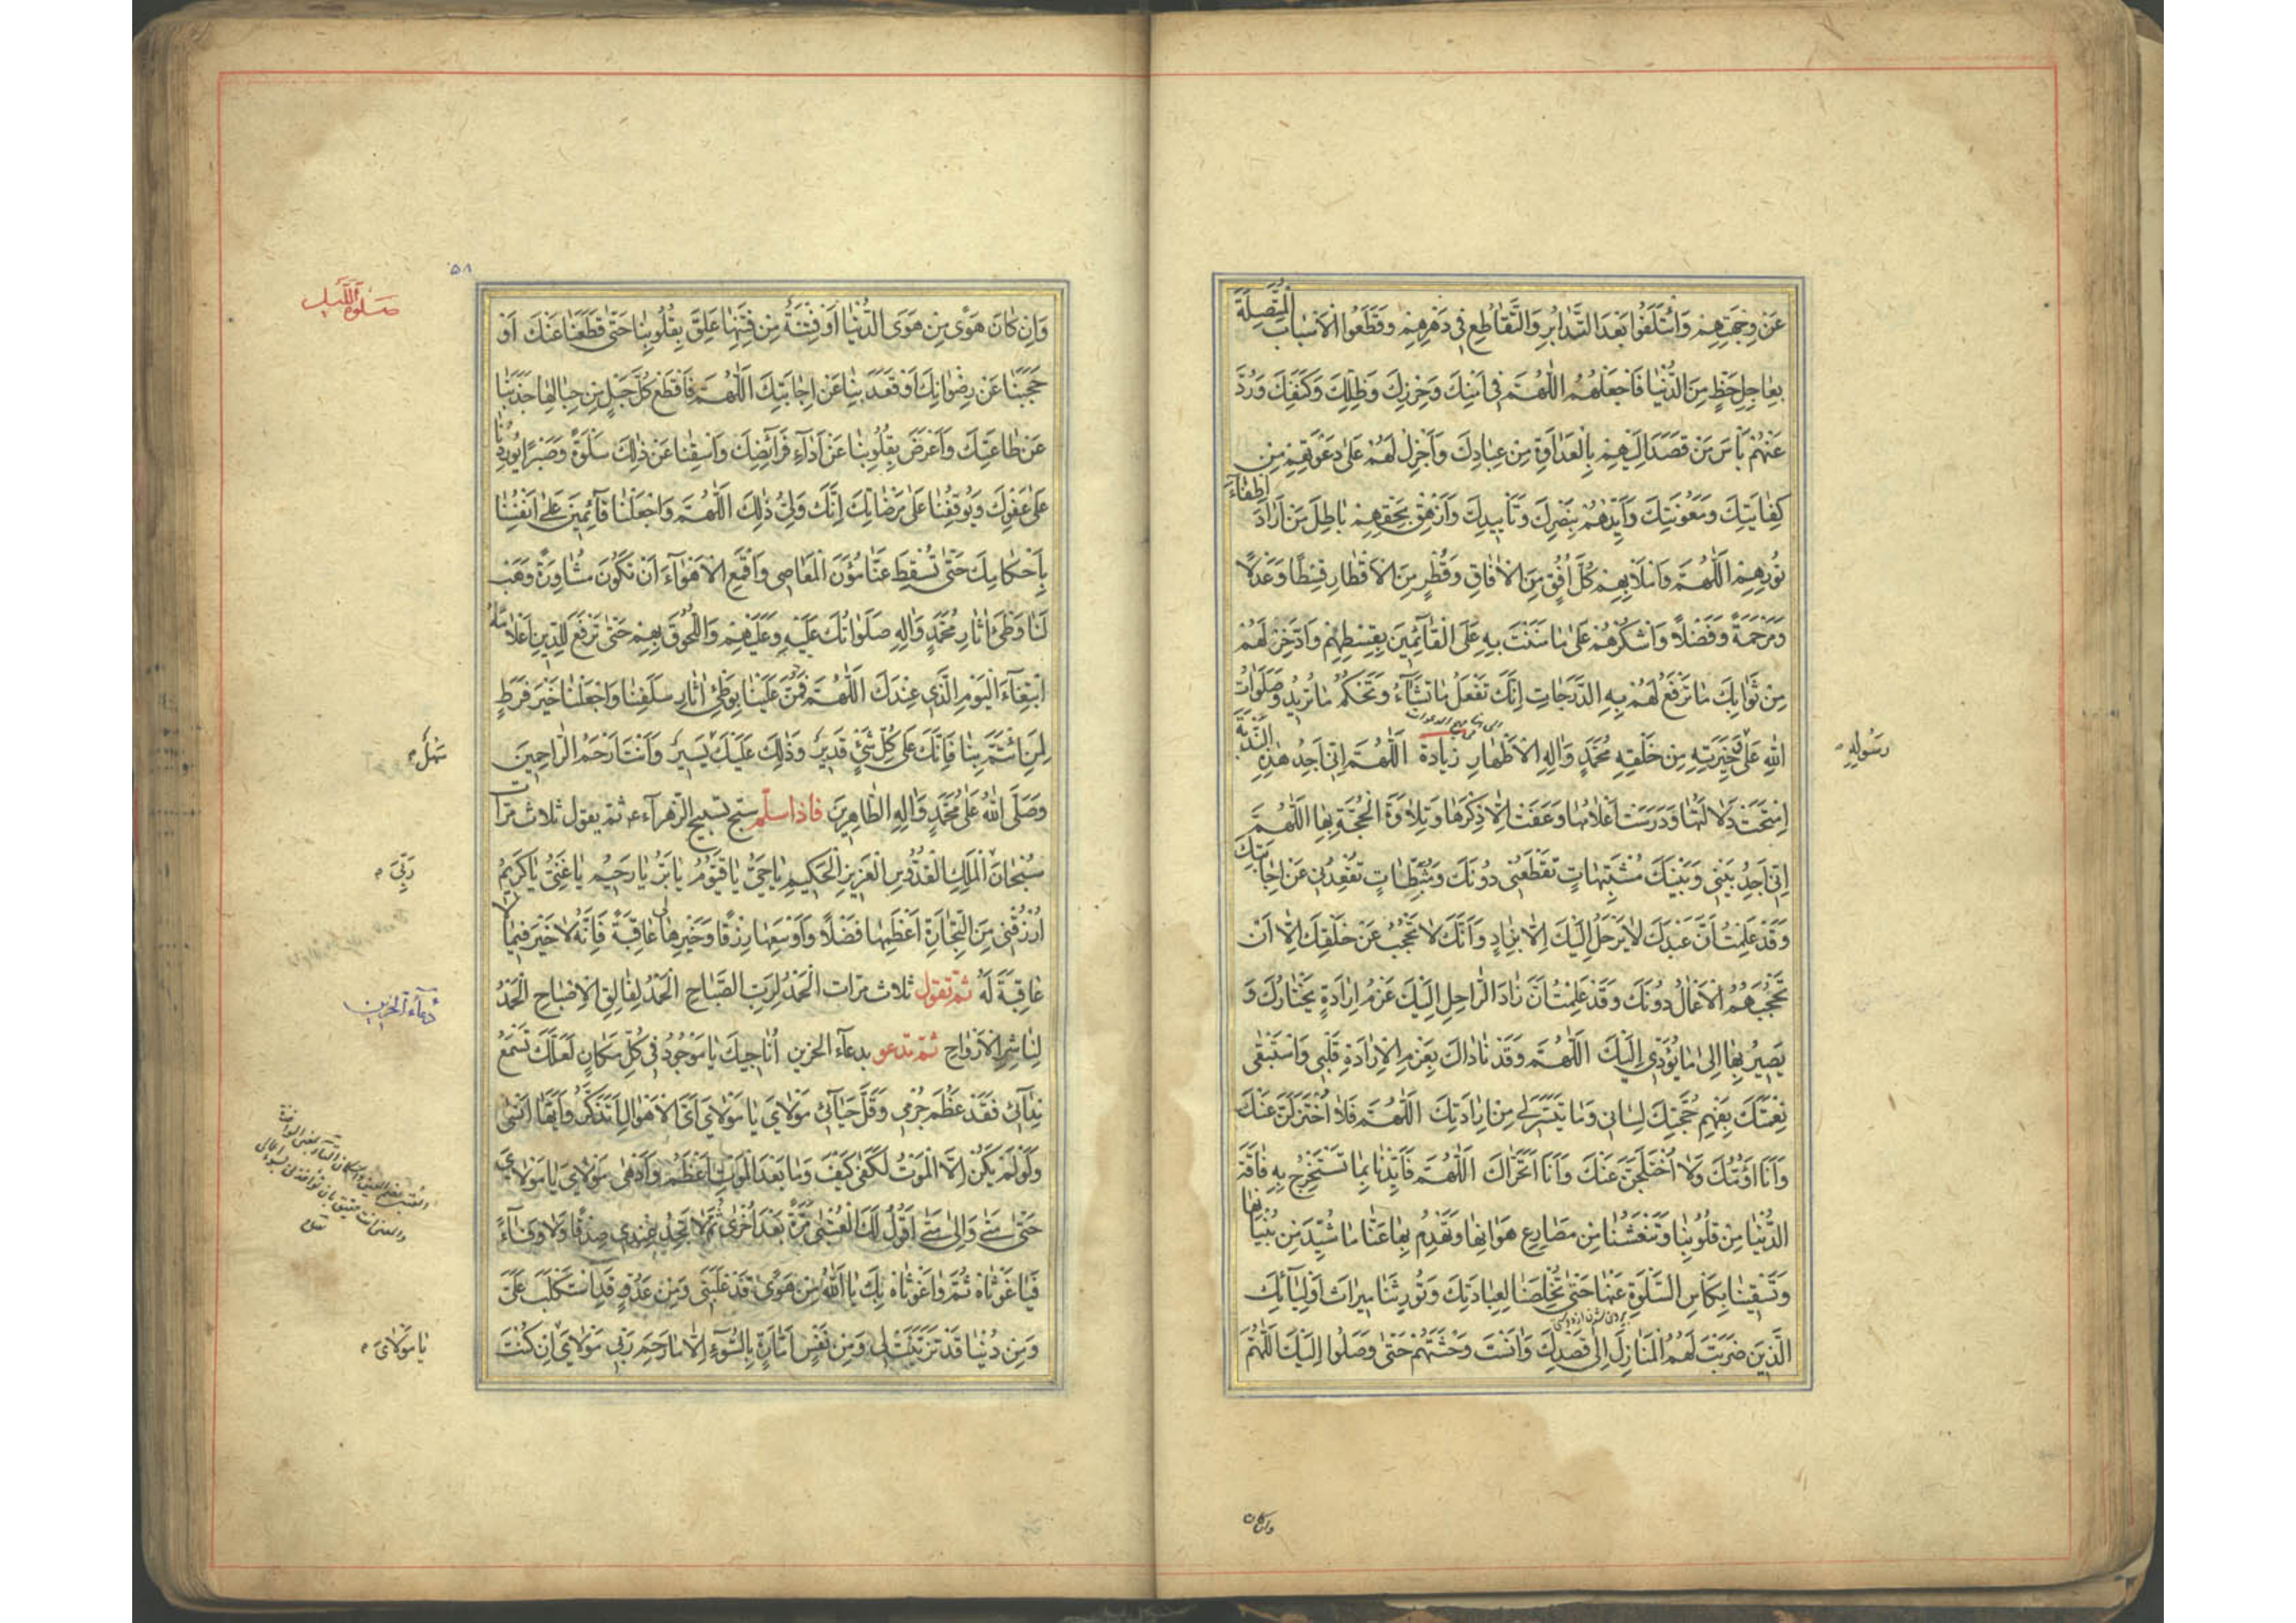 عَنْ وِجْهَتِهِمْ وَائْتَلَفُوا بَعْدَ التَّدَابُرِ وَالتَّقَاطُعِ فِي دَهْرِهِمْ وَقَطَعُوا الْاَسْبَابَ الْمُتَّصِلَةَ
بِعَاجِلِ حَظٍّ مِنَ الدُّنْيَا فَاجْعَلْهُمُ اللّٰهُمَّ فِي اَمْنِكَ وَحِرْزِكَ وَظِلِّكَ وَكَنَفِكَ وَرُدَّ
عَنْهُمْ بَأْسَ مَنْ قَصَدَ اِلَيْهِمْ بِالْعَدَاوَةِ مِنْ عِبَادِكَ وَاَجْزِلْ لَهُمْ عَلٰى دَعْوَتِهِمْ مِنْ
كِفَايَتِكَ وَمَعُونَتِكَ وَاَيِّدْهُمْ بِنَصْرِكَ وَتَأْيِيدِكَ وَاَزْهِقْ بِحَقِّهِمْ بَاطِلَ مَنْ اَرَادَ اِطْفَاءَ
نُورِهِمْ اللّٰهُمَّ وَامْلَأْ بِهِمْ كُلَّ اُفُقٍ مِنَ الْاٰفَاقِ وَقُطْرٍ مِنَ الْاَقْطَارِ قِسْطًا وَعَدْلًا
وَمَرْحَمَةً وَفَضْلًا وَاشْكُرْهُمْ عَلٰى مَا مَنَنْتَ بِهِ عَلَى الْقَائِمِينَ بِقِسْطِهِمْ وَادَّخِرْ لَهُمْ
مِنْ ثَوَابِكَ مَا تَرْفَعُ لَهُمْ بِهِ الدَّرَجَاتِ اِنَّكَ تَفْعَلُ مَا تَشَاءُ وَتَحْكُمُ مَا تُرِيدُ وَصَلَوَاتُ
اللهِ عَلٰى خِيَرَتِهِ مِنْ خَلْقِهِ مُحَمَّدٍ وَاٰلِهِ الْاَطْهَارِ زيادة اللّٰهُمَّ اِنِّي اَجِدُ هٰذِهِ النُّدْبَةَ
رَسُولِهِ
اِمْتَحَتْ دَلَالَتُهَا وَدَرَسَتْ اَعْلَامُهَا وَعَفَتْ اِلَّا ذِكْرَهَا وَتِلَاوَةَ الْحُجَّةِ بِهَا اللّٰهُمَّ
اِنِّي اَجِدُ بَيْنِي وَبَيْنَكَ مُشْتَبِهَاتٍ تَقْطَعُنِي دُونَكَ وَمُثَبِّطَاتٍ تُقْعِدُنِي عَنْ اِجَابَتِكَ
وَقَدْ عَلِمْتُ اَنَّ عَبْدَكَ لَا يَرْحَلُ اِلَيْكَ اِلَّا بِزَادٍ وَاَنَّكَ لَا تَحْجُبُ عَنْ خَلْقِكَ اِلَّا اَنْ
تَحْجُبَهُمُ الْاَعْمَالُ دُونَكَ وَقَدْ عَلِمْتُ اَنَّ زَادَ الرَّاحِلِ اِلَيْكَ عَزْمُ اِرَادَةٍ يَخْتَارُكَ وَ
يَصِيرُ بِهَا اِلٰى مَا يُؤَدِّي اِلَيْكَ اللّٰهُمَّ وَقَدْ نَادَاكَ بِعَزْمِ الْاِرَادَةِ قَلْبِي وَاسْتَبْقٰى
نِعْمَتَكَ بِفَهْمِ حُجَّتِكَ لِسَانِي وَمَا تَيَسَّرَ لِي مِنْ اِرَادَتِكَ اللّٰهُمَّ فَلَا اُخْتَزَلَنَّ عَنْكَ
وَاَنَا اَؤُمُّكَ وَلَا اُخْتَلَجَنَّ عَنْكَ وَاَنَا اَتَحَرَّاكَ اللّٰهُمَّ فَاَيِّدْنَا بِمَا تَسْتَخْرِجُ بِهِ فَاقَةَ
الدُّنْيَا مِنْ قُلُوبِنَا وَتَنْعَشُنَا مِنْ مَصَارِعِ هَوَانِهَا وَتَهْدِمُ بِهَا عَنَّا مَا شُيِّدَ مِنْ بُنْيَانِهَا
وَتَسْقِينَا بِكَأْسِ السَّلْوَةِ عَنْهَا حَتّٰى تُخْلِصَنَا لِعِبَادَتِكَ وَتُورِثَنَا مِيرَاثَ اَوْلِيَائِكَ
الَّذِينَ ضَرَبْتَ لَهُمُ الْمَنَازِلَ اِلٰى قَصْدِكَ وَاٰنَسْتَ وَحْشَتَهُمْ حَتّٰى وَصَلُوا اِلَيْكَ اللّٰهُمَّ
وان كان
۵۸
صَلٰوة اللَّيل
وَاِنْ كَانَ هَوًى مِنْ هَوَى الدُّنْيَا اَوْ فِتْنَةٌ مِنْ فِتَنِهَا عَلِقَ بِقُلُوبِنَا حَتّٰى قَطَعَنَا عَنْكَ اَوْ
حَجَبَنَا عَنْ رِضْوَانِكَ اَوْ قَعَدَ بِنَا عَنْ اِجَابَتِكَ اللّٰهُمَّ فَاقْطَعْ كُلَّ حَبْلٍ مِنْ حِبَالِهَا جَذَبَنَا
عَنْ طَاعَتِكَ وَاَعْرَضَ بِقُلُوبِنَا عَنْ اَدَاءِ فَرَائِضِكَ وَاسْقِنَا عَنْ ذٰلِكَ سَلْوَةً وَصَبْرًا يُورِدُنَا
عَلٰى عَفْوِكَ وَيُوقِفُنَا عَلٰى مَرْضَاتِكَ اِنَّكَ وَلِيُّ ذٰلِكَ اللّٰهُمَّ وَاجْعَلْنَا قَائِمِينَ عَلٰى اَنْفُسِنَا
بِاَحْكَامِكَ حَتّٰى تُسْقِطَ عَنَّا مُؤَنَ الْمَعَاصِي وَاقْمَعِ الْاَهْوَاءَ اَنْ تَكُونَ مُشَاوَرَةً وَهَبْ
لَنَا وَطْيَ اٰثَارِ مُحَمَّدٍ وَاٰلِهِ صَلَوَاتُكَ عَلَيْهِ وَعَلَيْهِمْ وَاللُّحُوقَ بِهِمْ حَتّٰى تَرْفَعَ لِلدِّينِ اَعْلَامَهُ
ابْتِغَاءَ الْيَوْمِ الَّذِي عِنْدَكَ اللّٰهُمَّ فَمُنَّ عَلَيْنَا بِوَطْيِ اٰثَارِ سَلَفِنَا وَاجْعَلْنَا خَيْرَ فَرَطٍ
لِمَنِ ائْتَمَّ بِنَا فَاِنَّكَ عَلٰى كُلِّ شَيْءٍ قَدِيرٌ وَذٰلِكَ عَلَيْكَ يَسِيرٌ وَاَنْتَ اَرْحَمُ الرَّاحِمِينَ
سَهْلٌ
وَصَلَّى اللهُ عَلٰى مُحَمَّدٍ وَاٰلِهِ الطَّاهِرِينَ فاذا سلّم سبّح تسبيح الزهراء ع ثم يقول ثلاث مرّات
سُبْحَانَ الْمَلِكِ الْقُدُّوسِ الْعَزِيزِ الْحَكِيمِ يَا حَيُّ يَا قَيُّومُ يَا بَرُّ يَا رَحِيمُ يَا غَنِيُّ يَا كَرِيمُ
رَبِّيَ
اُرْزُقْنِي مِنَ التِّجَارَةِ اَعْظَمَهَا فَضْلًا وَاَوْسَعَهَا رِزْقًا وَخَيْرَهَا لِي عَاقِبَةً فَاِنَّهُ لَا خَيْرَ فِيمَا لَا
عَاقِبَةَ لَهُ ثمّ تقول ثلاث مرّات اَلْحَمْدُ لِرَبِّ الصَّبَاحِ اَلْحَمْدُ لِفَالِقِ الْاِصْبَاحِ اَلْحَمْدُ
دُعاء الحزين
لِنَاشِرِ الْاَرْوَاحِ ثمّ تدعو بدعاء الحزين اُنَاجِيكَ يَا مَوْجُودُ فِي كُلِّ مَكَانٍ لَعَلَّكَ تَسْمَعُ
نِدَائِي فَقَدْ عَظُمَ جُرْمِي وَقَلَّ حَيَائِي مَوْلَايَ يَا مَوْلَايَ اَيَّ الْاَهْوَالِ اَتَذَكَّرُ وَاَيَّهَا اَنْسٰى
وَلَوْ لَمْ يَكُنْ اِلَّا الْمَوْتُ لَكَفٰى كَيْفَ وَمَا بَعْدَ الْمَوْتِ اَعْظَمُ وَاَدْهٰى مَوْلَايَ يَا مَوْلَايَ
حَتّٰى مَتٰى وَاِلٰى مَتٰى اَقُولُ لَكَ الْعُتْبٰى مَرَّةً بَعْدَ اُخْرٰى ثُمَّ لَا تَجِدُ عِنْدِي صِدْقًا وَلَا وَفَاءً
فَيَا غَوْثَاهُ ثُمَّ وَا غَوْثَاهُ بِكَ يَا اَللهُ مِنْ هَوًى قَدْ غَلَبَنِي وَمِنْ عَدُوٍّ قَدِ اسْتَكْلَبَ عَلَيَّ
وَمِنْ دُنْيَا قَدْ تَزَيَّنَتْ لِي وَمِنْ نَفْسٍ اَمَّارَةٍ بِالسُّوءِ اِلَّا مَا رَحِمَ رَبِّي مَوْلَايَ اِنْ كُنْتَ
يَا مَوْلَايَ